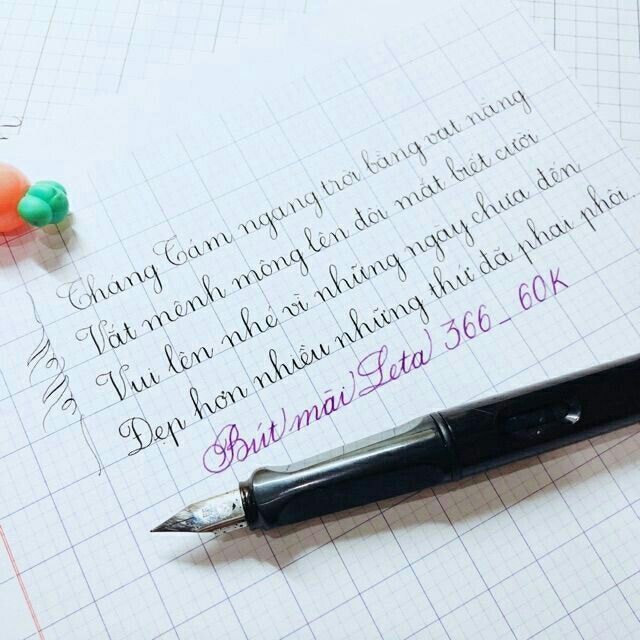 Tháng Tám ngang trời bằng vạt nắng
Vắt mênh mông lên đôi mắt biết cười
Vui lên nhé vì những ngày chưa đến
Đẹp hơn nhiều những thứ đã phai phôi.
Bút mài Leta 366_60K